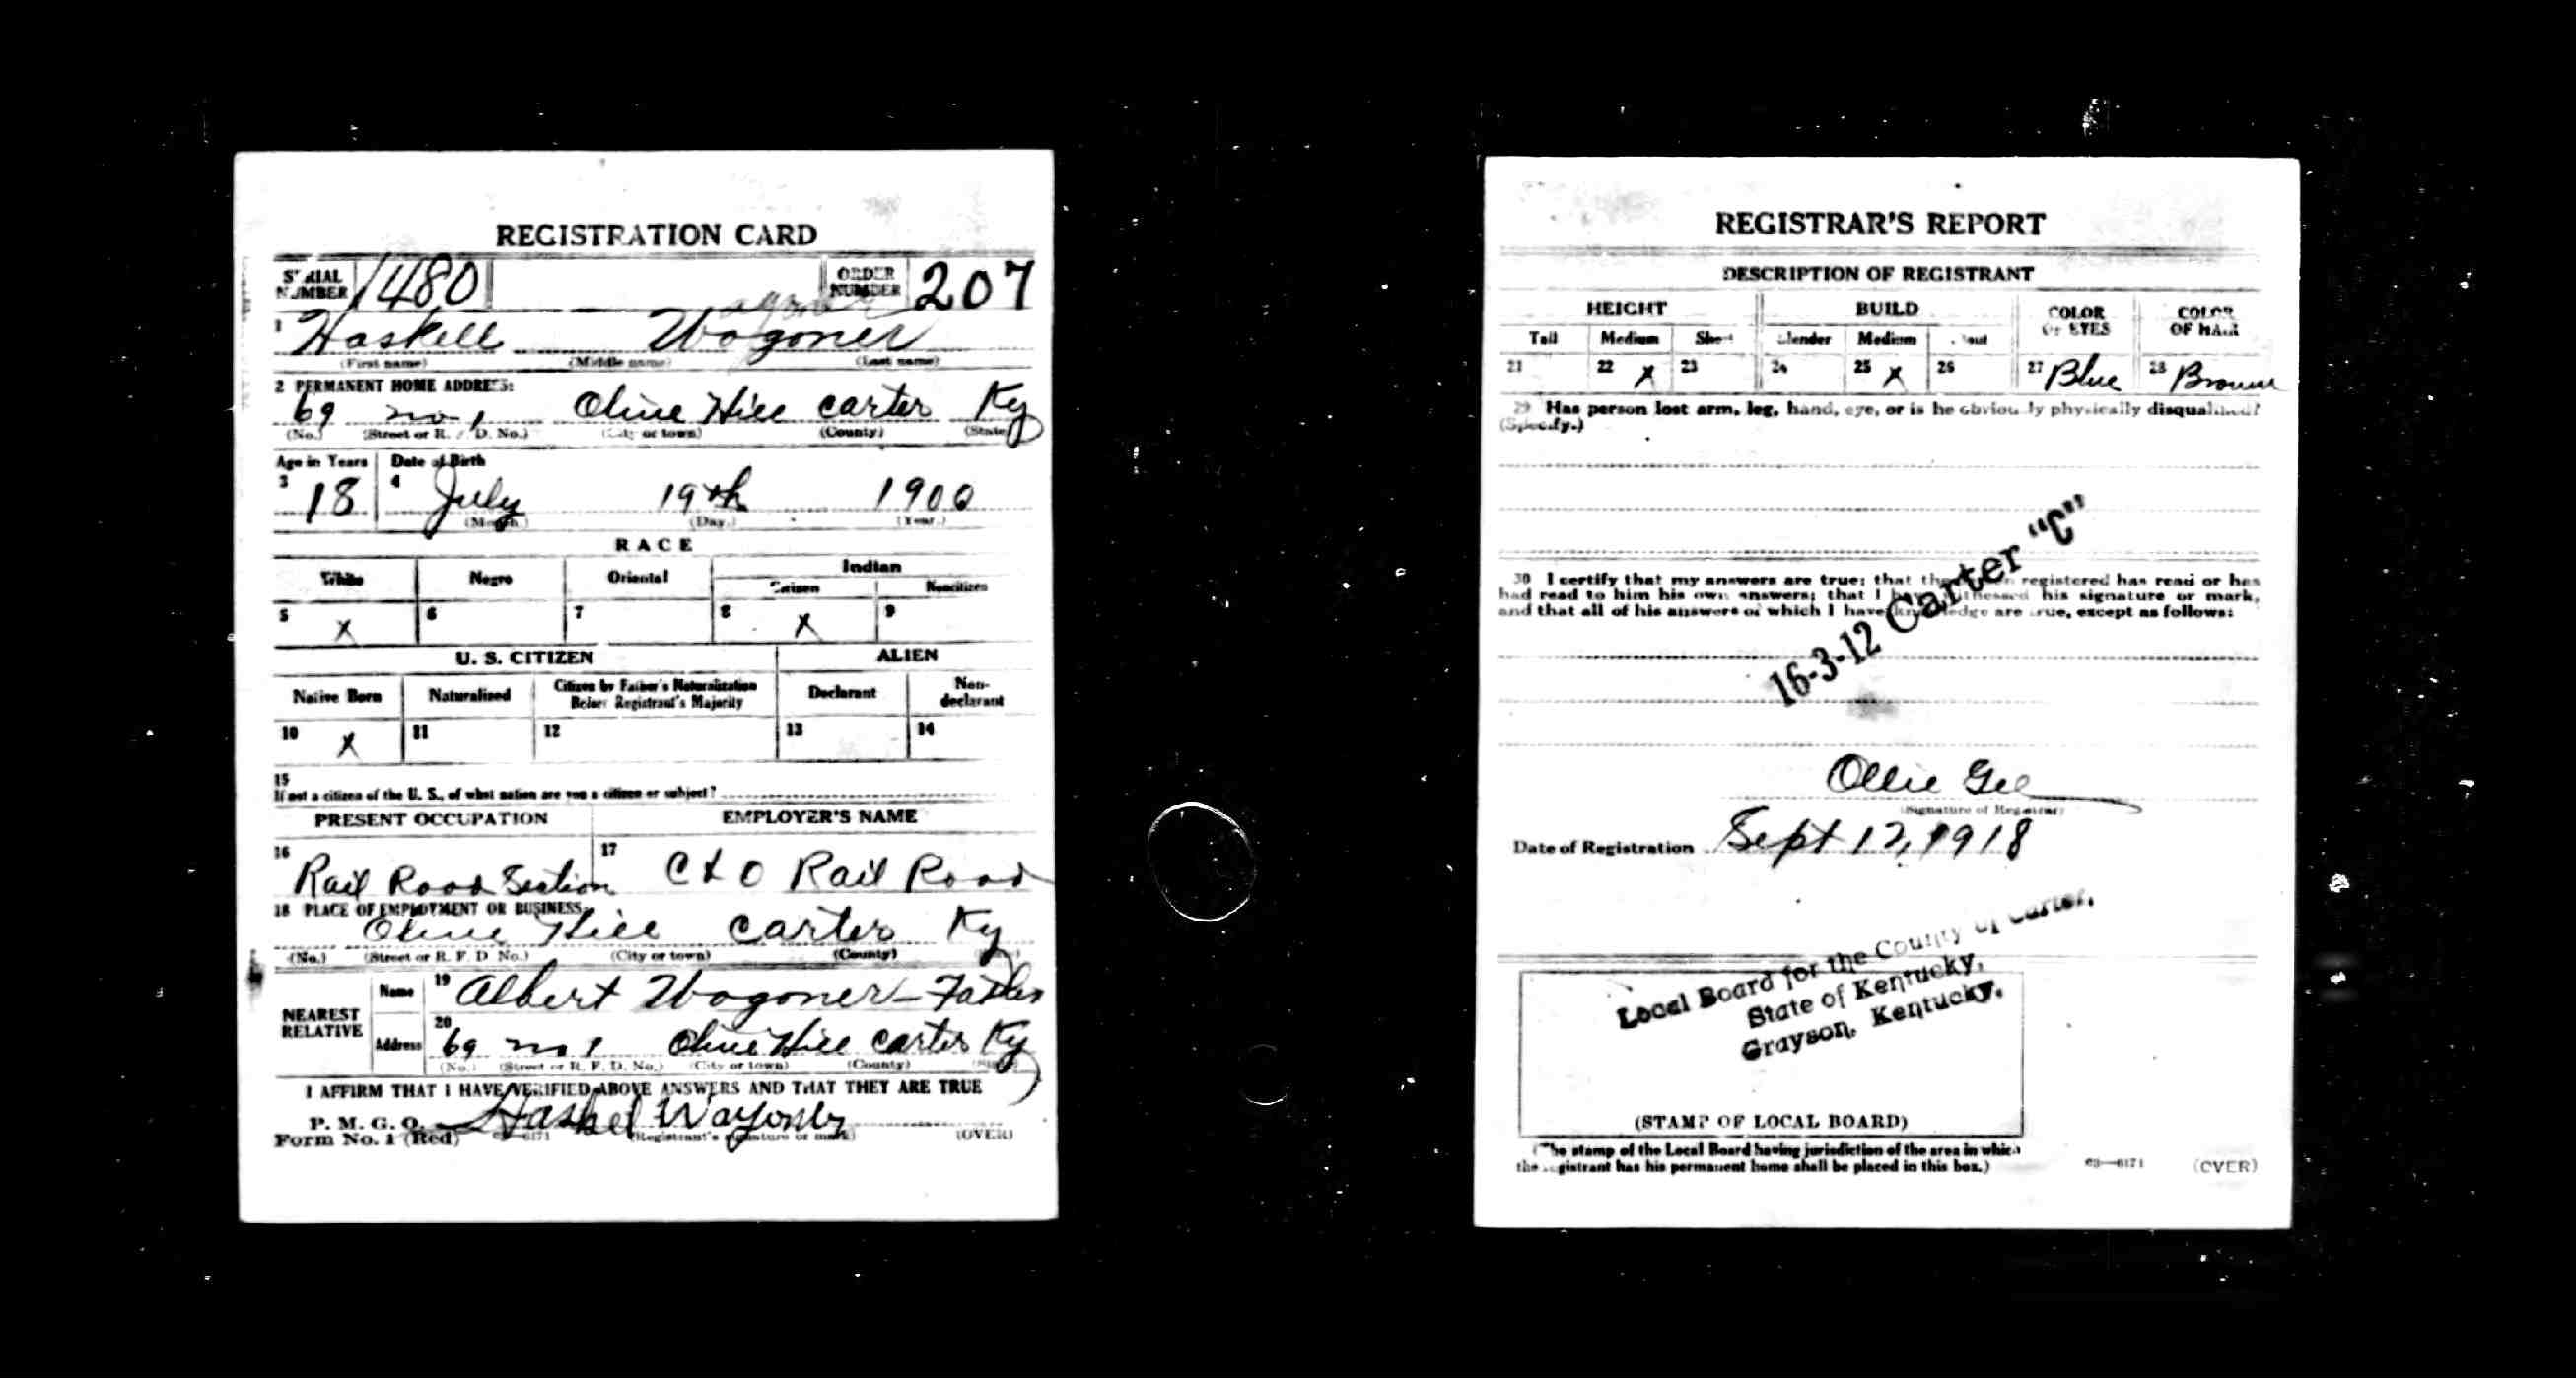 REGISTRATION CARD
SERIAL NUMBER 1480 ORDER NUMBER 207
1 Haskell Wogoner
(First name) (Middle name) (Last name)
2 PERMANENT HOME ADDRESS:
69 no 1 Olive Hill Carter Ky
(No.) (Street or R. F. D. No.) (City or town) (County) (State)
Age in Years Date of Birth
3 18 4 July 19th 1900
(Month.) (Day.) (Year.)
RACE
White Negro Oriental Indian
Citizen Noncitizen
5 X 6 7 8 X 9
U. S. CITIZEN ALIEN
Native Born Naturalized Citizen by Father's Naturalization Before Registrant's Majority Declarant Non-declarant
10 X 11 12 13 14
15
If not a citizen of the U. S., of what nation are you a citizen or subject?
PRESENT OCCUPATION EMPLOYER'S NAME
16 Rail Road Section 17 C & O Rail Road
18 PLACE OF EMPLOYMENT OR BUSINESS:
Olive Hill Carter Ky
(No.) (Street or R. F. D. No.) (City or town) (County)
NEAREST RELATIVE
Name 19 Albert Wogoner - Father
Address 20 69 no 1 Olive Hill Carter Ky
(No.) (Street or R. F. D. No.) (City or town) (County) (State)
I AFFIRM THAT I HAVE VERIFIED ABOVE ANSWERS AND THAT THEY ARE TRUE
P. M. G. O.
Form No. 1 (Red) Haskel
(Registrant's signature or mark) (OVER)
REGISTRAR'S REPORT
DESCRIPTION OF REGISTRANT
HEIGHT BUILD COLOR OF EYES COLOR OF HAIR
Tall Medium Short Slender Medium Stout
21 22 X 23 24 25 X 26 27 Blue 28 Brown
29 Has person lost arm, leg, hand, eye, or is he obviously physically disqualified?
(Specify.)
30 I certify that my answers are true; that the person registered has read or has
had read to him his own answers; that I have witnessed his signature or mark,
and that all of his answers of which I have knowledge are true, except as follows:
16-3-12 Carter "C"
Ollie Gee
(Signature of Registrar)
Date of Registration Sept 12, 1918
Local Board for the County of Carter,
State of Kentucky,
Grayson, Kentucky.
(STAMP OF LOCAL BOARD)
(The stamp of the Local Board having jurisdiction of the area in which
the registrant has his permanent home shall be placed in this box.)
03—6171 (OVER)